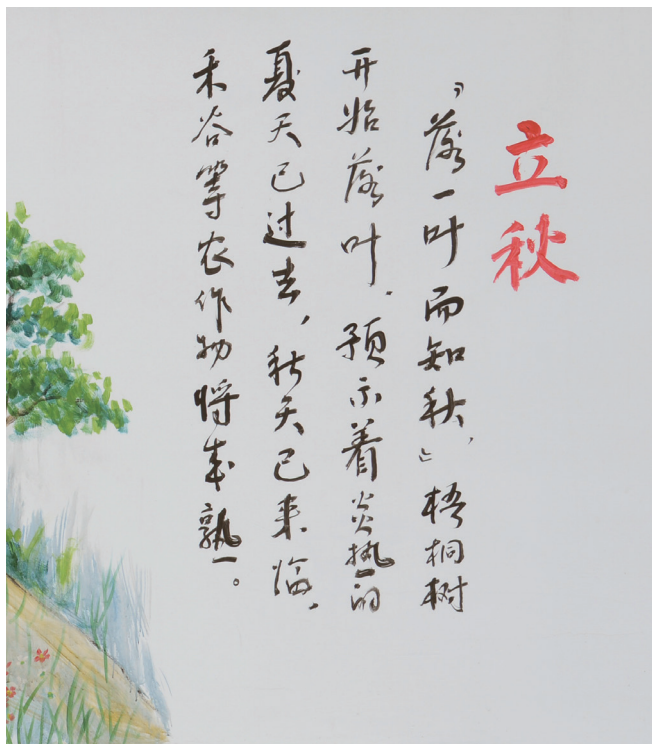 立秋
“落一叶而知秋,”梧桐树
开始落叶.预示着炎热的
夏天已过去,秋天已来临,
禾谷等农作物将成熟。